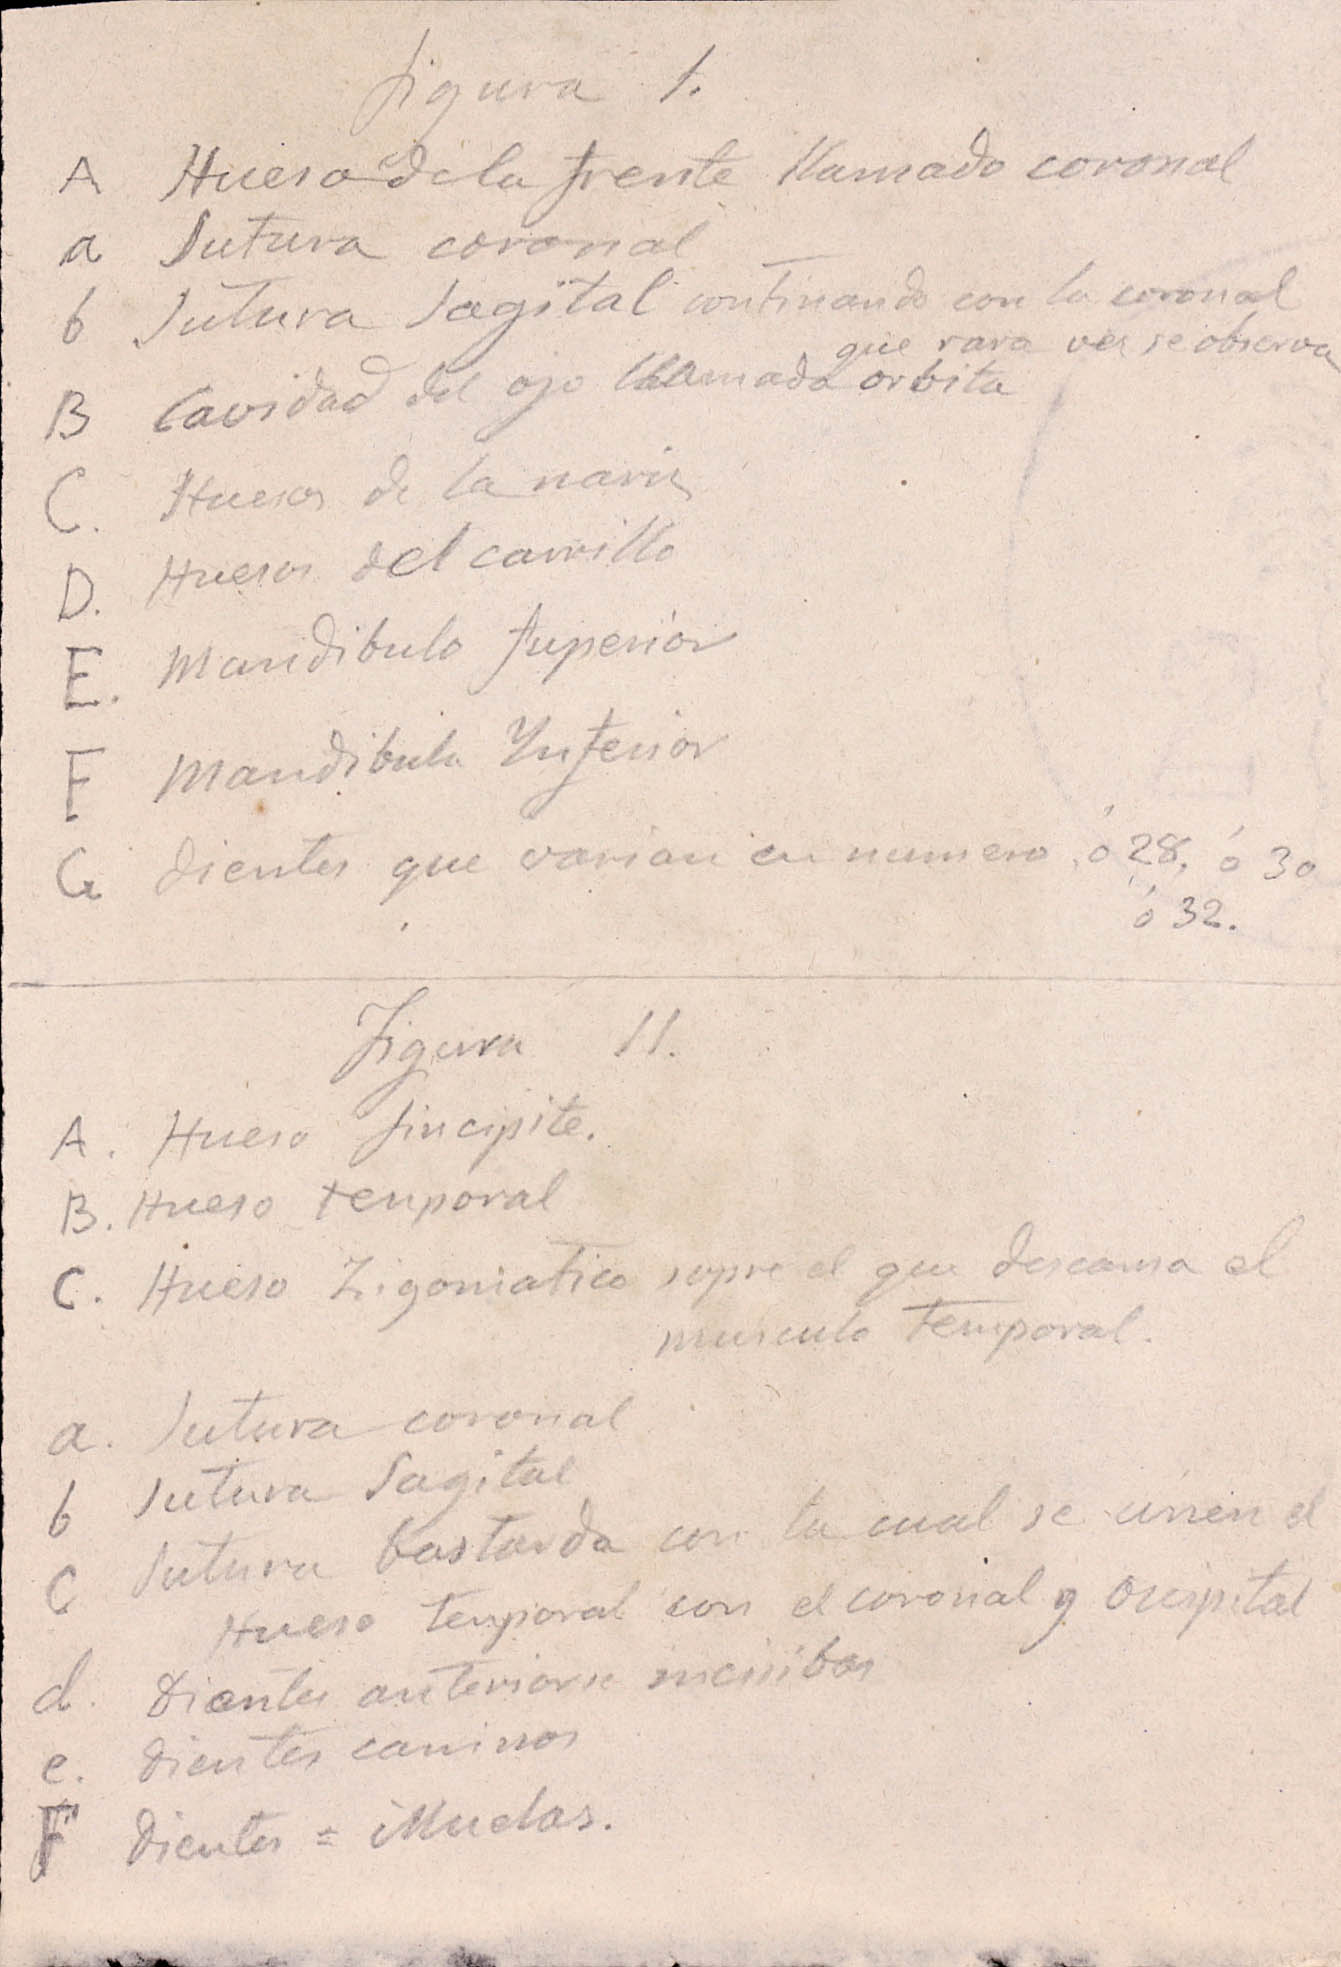 figura 1.
A Hueso de la frente llamado coronal
a Sutura coronal
b Sutura Sagital continando con la coronal
que rara vez se observa
B Cavidad del ojo llamada orbita
C. Huesos de la nariz
D. Huesos del carrillo
E. Mandibula Superior
F Mandibula Inferior
G dientes que varian en numero, ó 28, ó 30
ó 32.
Figura II.
A. Hueso Sincipite.
B. Hueso temporal
C. Hueso Zigomatico sopre el que descansa el
musculo temporal.
a. Sutura coronal
b Sutura Sagital
C Sutura bastarda con la cual se unen el
Hueso temporal con el coronal y Occipital
d. Dientes anteriorse incisibos
e. dientes caninos
F Dientes = Muelas.